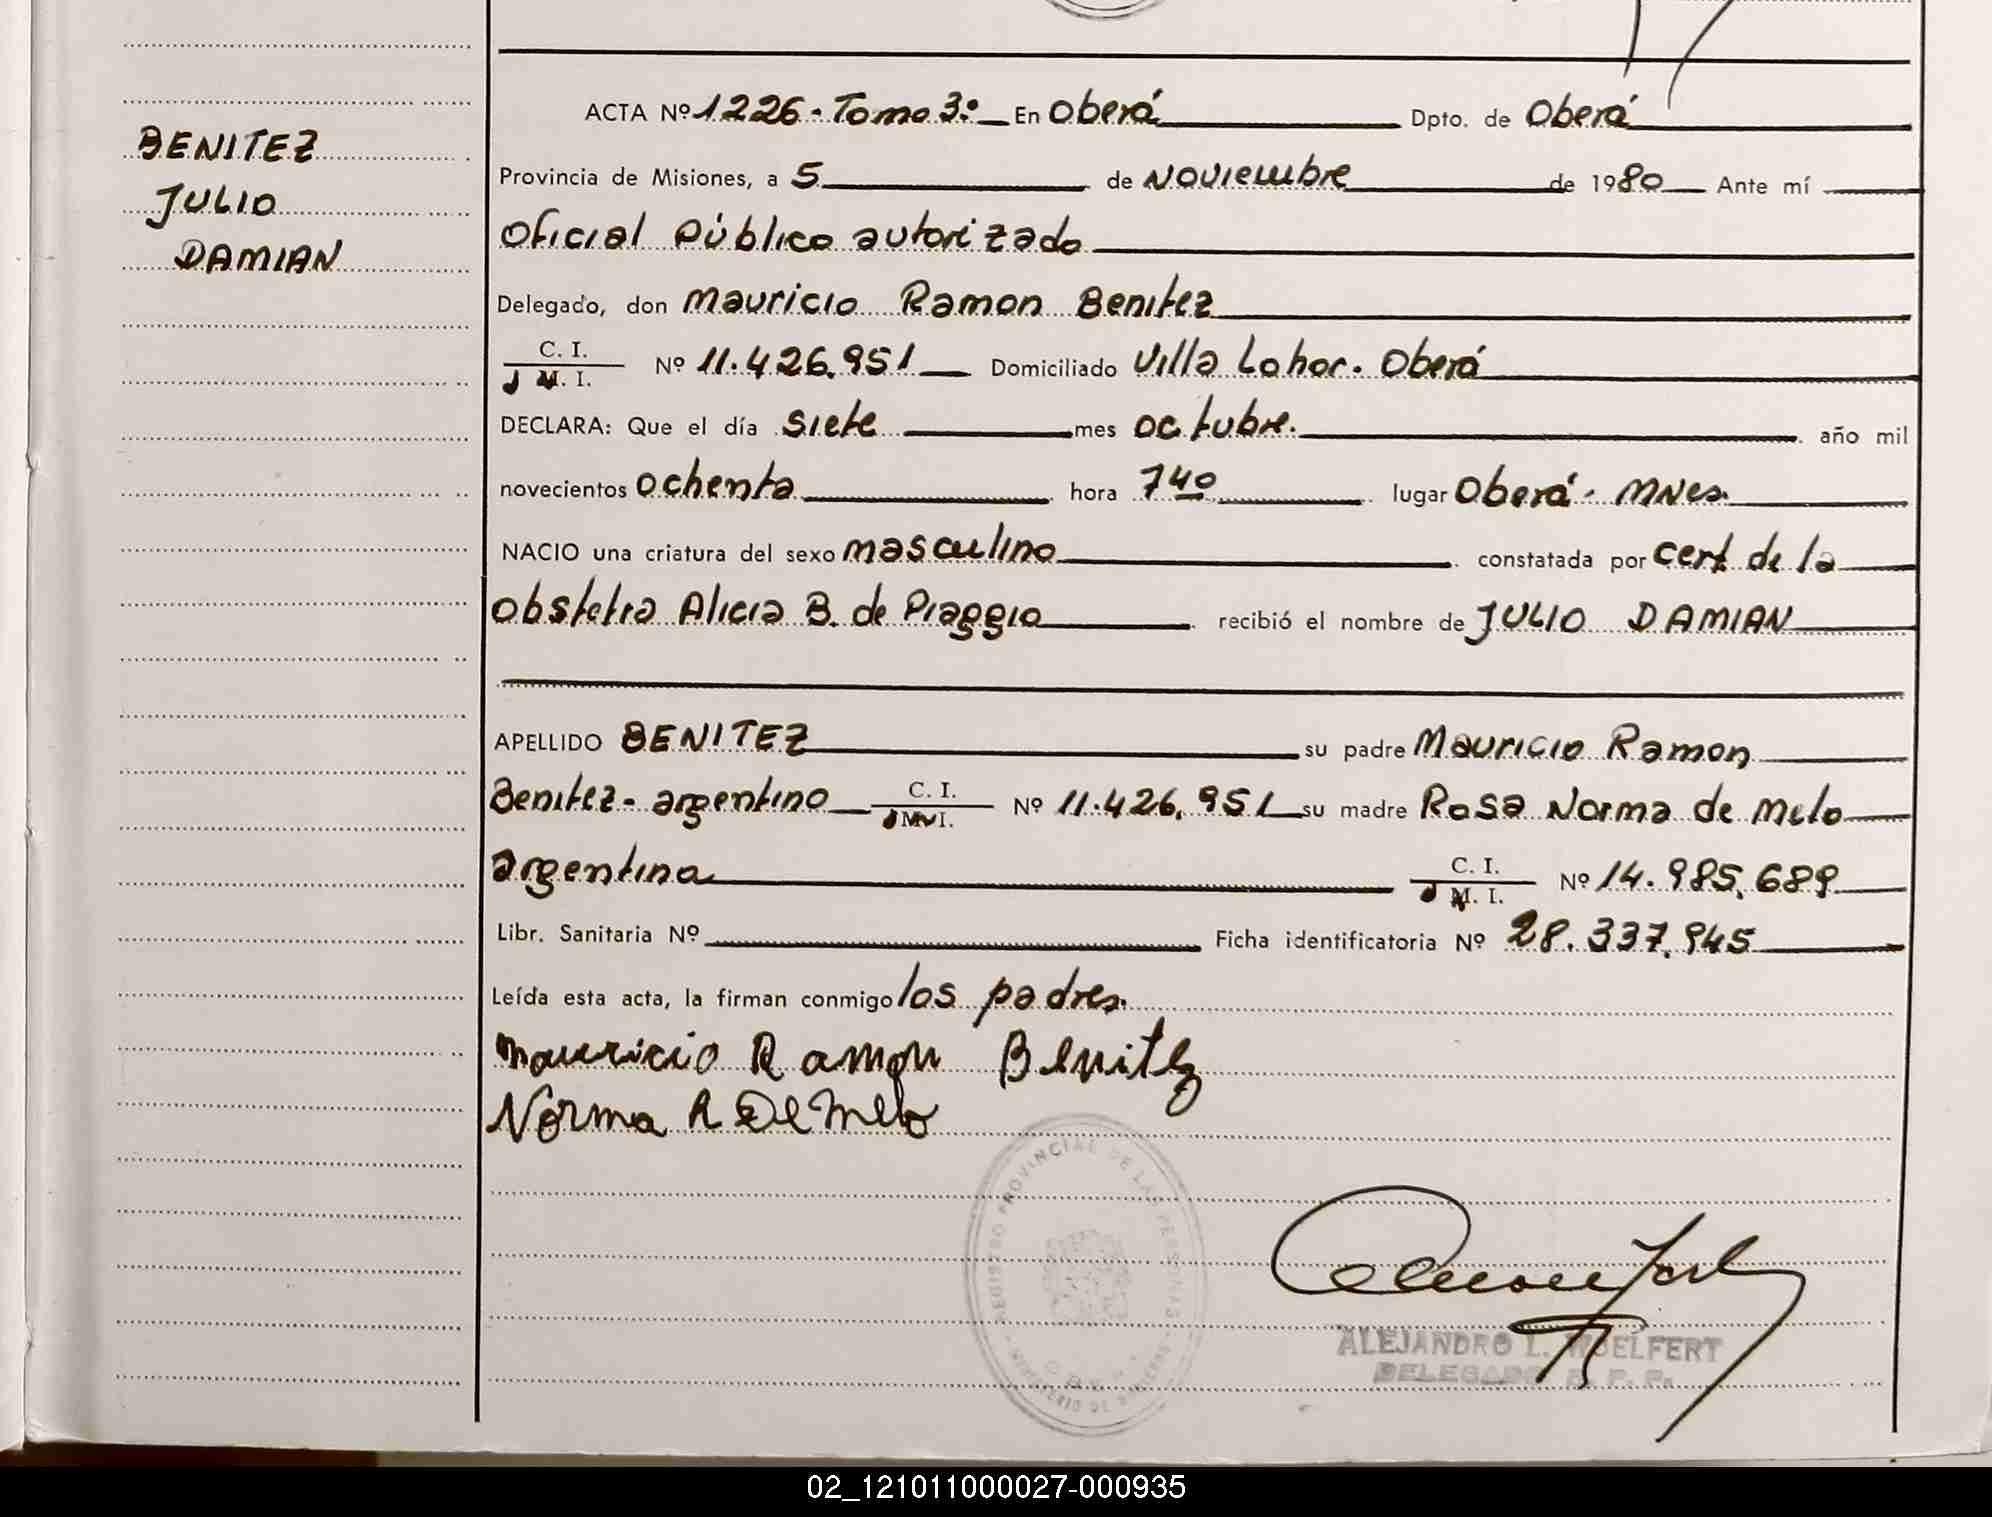 BENITEZ
JULIO
DAMIAN
ACTA Nº 1226 - Tomo 3º En Oberá Dpto. de Oberá
Provincia de Misiones, a 5 de Noviembre de 1980 Ante mí
Oficial Público autorizado
Delegado, don Mauricio Ramon Benitez
C. I.
M. I. Nº 11.426.951 Domiciliado Villa Lohor. Oberá
DECLARA: Que el día siete mes octubre. año mil
novecientos ochenta hora 7 40 lugar Oberá - MNes.
NACIO una criatura del sexo masculino constatada por cert. de la
Obstetra Alicia B. de Piaggio recibió el nombre de JULIO DAMIAN
APELLIDO BENITEZ su padre Mauricio Ramon
Benitez - argentino C. I. M. I. Nº 11.426.951 su madre Rosa Norma de Melo
argentina C. I. M. I. Nº 14.985.689
Libr. Sanitaria Nº Ficha identificatoria Nº 28.337.945
Leída esta acta, la firman conmigo los padres.
Mauricio Ramon Benitez
Norma R De Melo
REGISTRO PROVINCIAL DE LAS PERSONAS
ALEJANDRO L. WUELFERT
DELEGADO R. P. P.
02_121011000027-000935